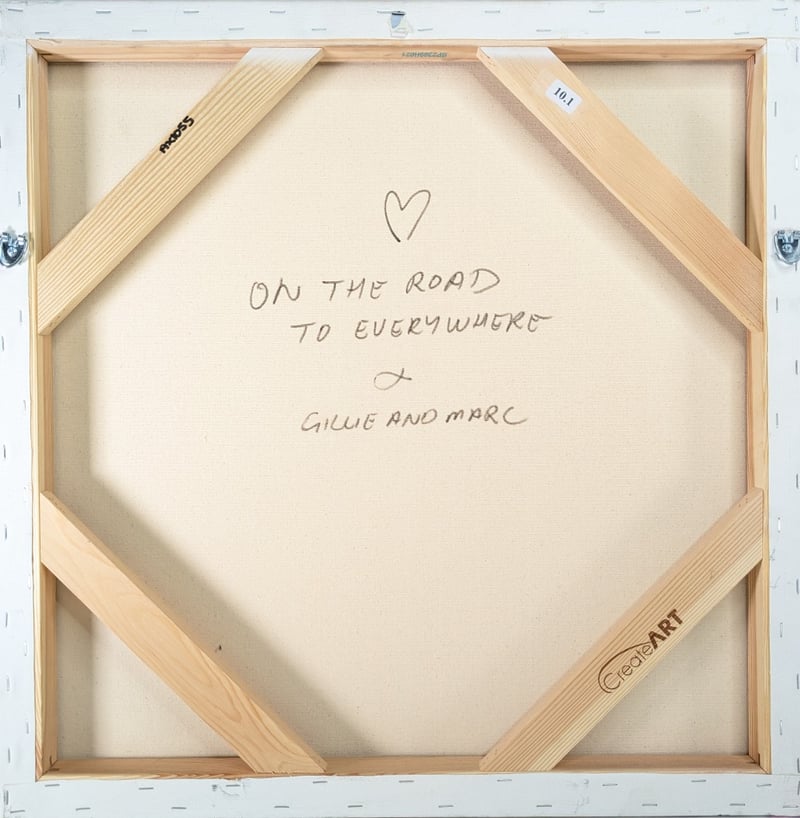 10.1
♡
ON THE ROAD
TO EVERYWHERE
GILLIE AND MARC
CreateART